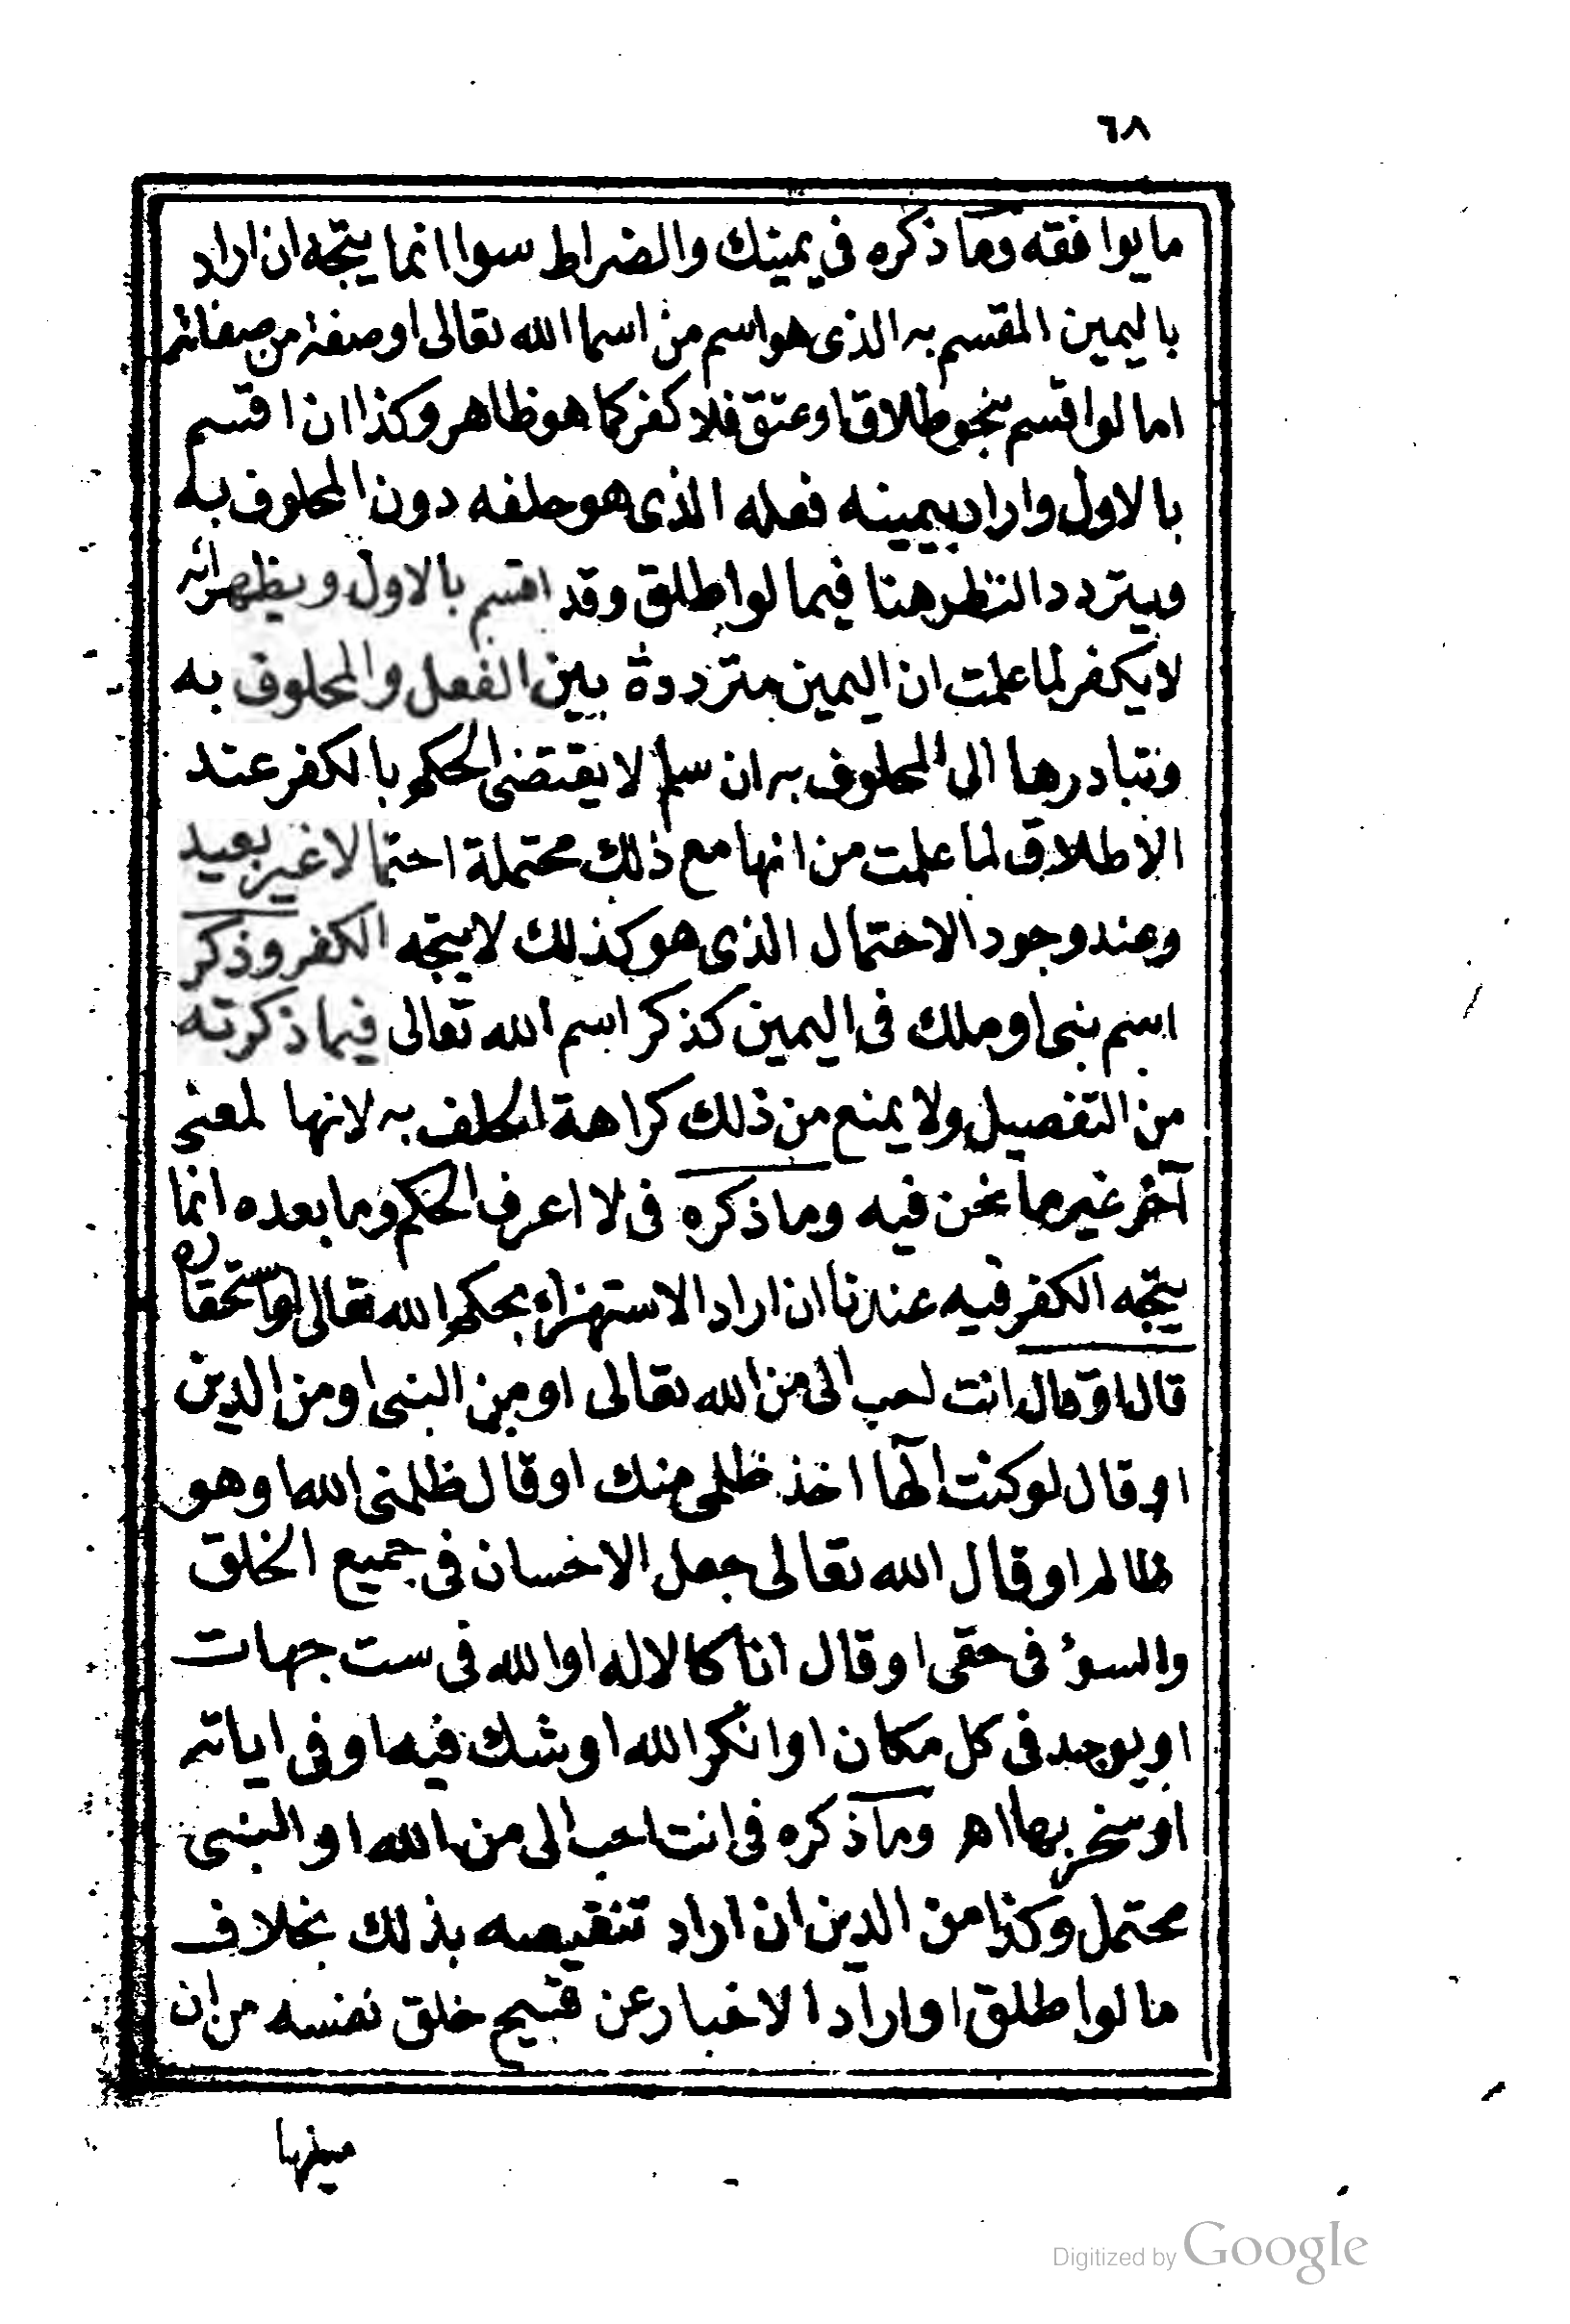 ٦٨
ما يوافقه وما ذكره في يمينك والضراط سوا انما يتجه ان اراد
باليمين المقسم به الذى هو اسم من اسما الله تعالى او صفة من صفاته
اما لو اقسم بنحو طلاق او عتق فلا كفر كما هو ظاهر وكذا ان اقسم
بالاول واراد بيمينه فعله الذى هو حلفه دون المحلوف به
ويتردد النظر هنا فيما لو اطلق وقد اقسم بالاول ويظهر انه
لا يكفر لما علمت ان اليمين مترددة بين الفعل والمحلوف به
وتبادرها الى المحلوف به ان سلم لا يقتضى الحكم بالكفر عند
الاطلاق لما علمت من انها مع ذلك محتملة احتمالا غير بعيد
وعند وجود الاحتمال الذى هو كذلك لا يتجه الكفر وذكر
اسم نبى او ملك فى اليمين كذكر اسم الله تعالى فيما ذكرته
من التفصيل ولا يمنع من ذلك كراهة الحلف به لانها لمعنى
آخر غير ما نحن فيه وما ذكره فى لا اعرف الحكم وما بعده انما
يتجه الكفر فيه عندنا ان اراد الاستهزاء بحكم الله تعالى او استحقاره
قال او قال انت احب الى من الله تعالى او من النبى او من الدين
او قال لو كنت الٓها اخذ ظلمى منك او قال ظلمنى الله او هو
ظالم او قال الله تعالى جعل الاحسان فى جميع الخلق
والسوء فى حقى او قال انا كالاله او الله فى ست جهات
او يوجد فى كل مكان او انكر الله او شك فيه او فى اياته
او سخر بها اهـ وما ذكره فى انت احب الى من الله او النبى
محتمل وكذا من الدين ان اراد تنقيصه بذلك بخلاف
ما لو اطلق او اراد الاخبار عن قبيح خلق نفسه من ان
ميلها
Digitized by Google